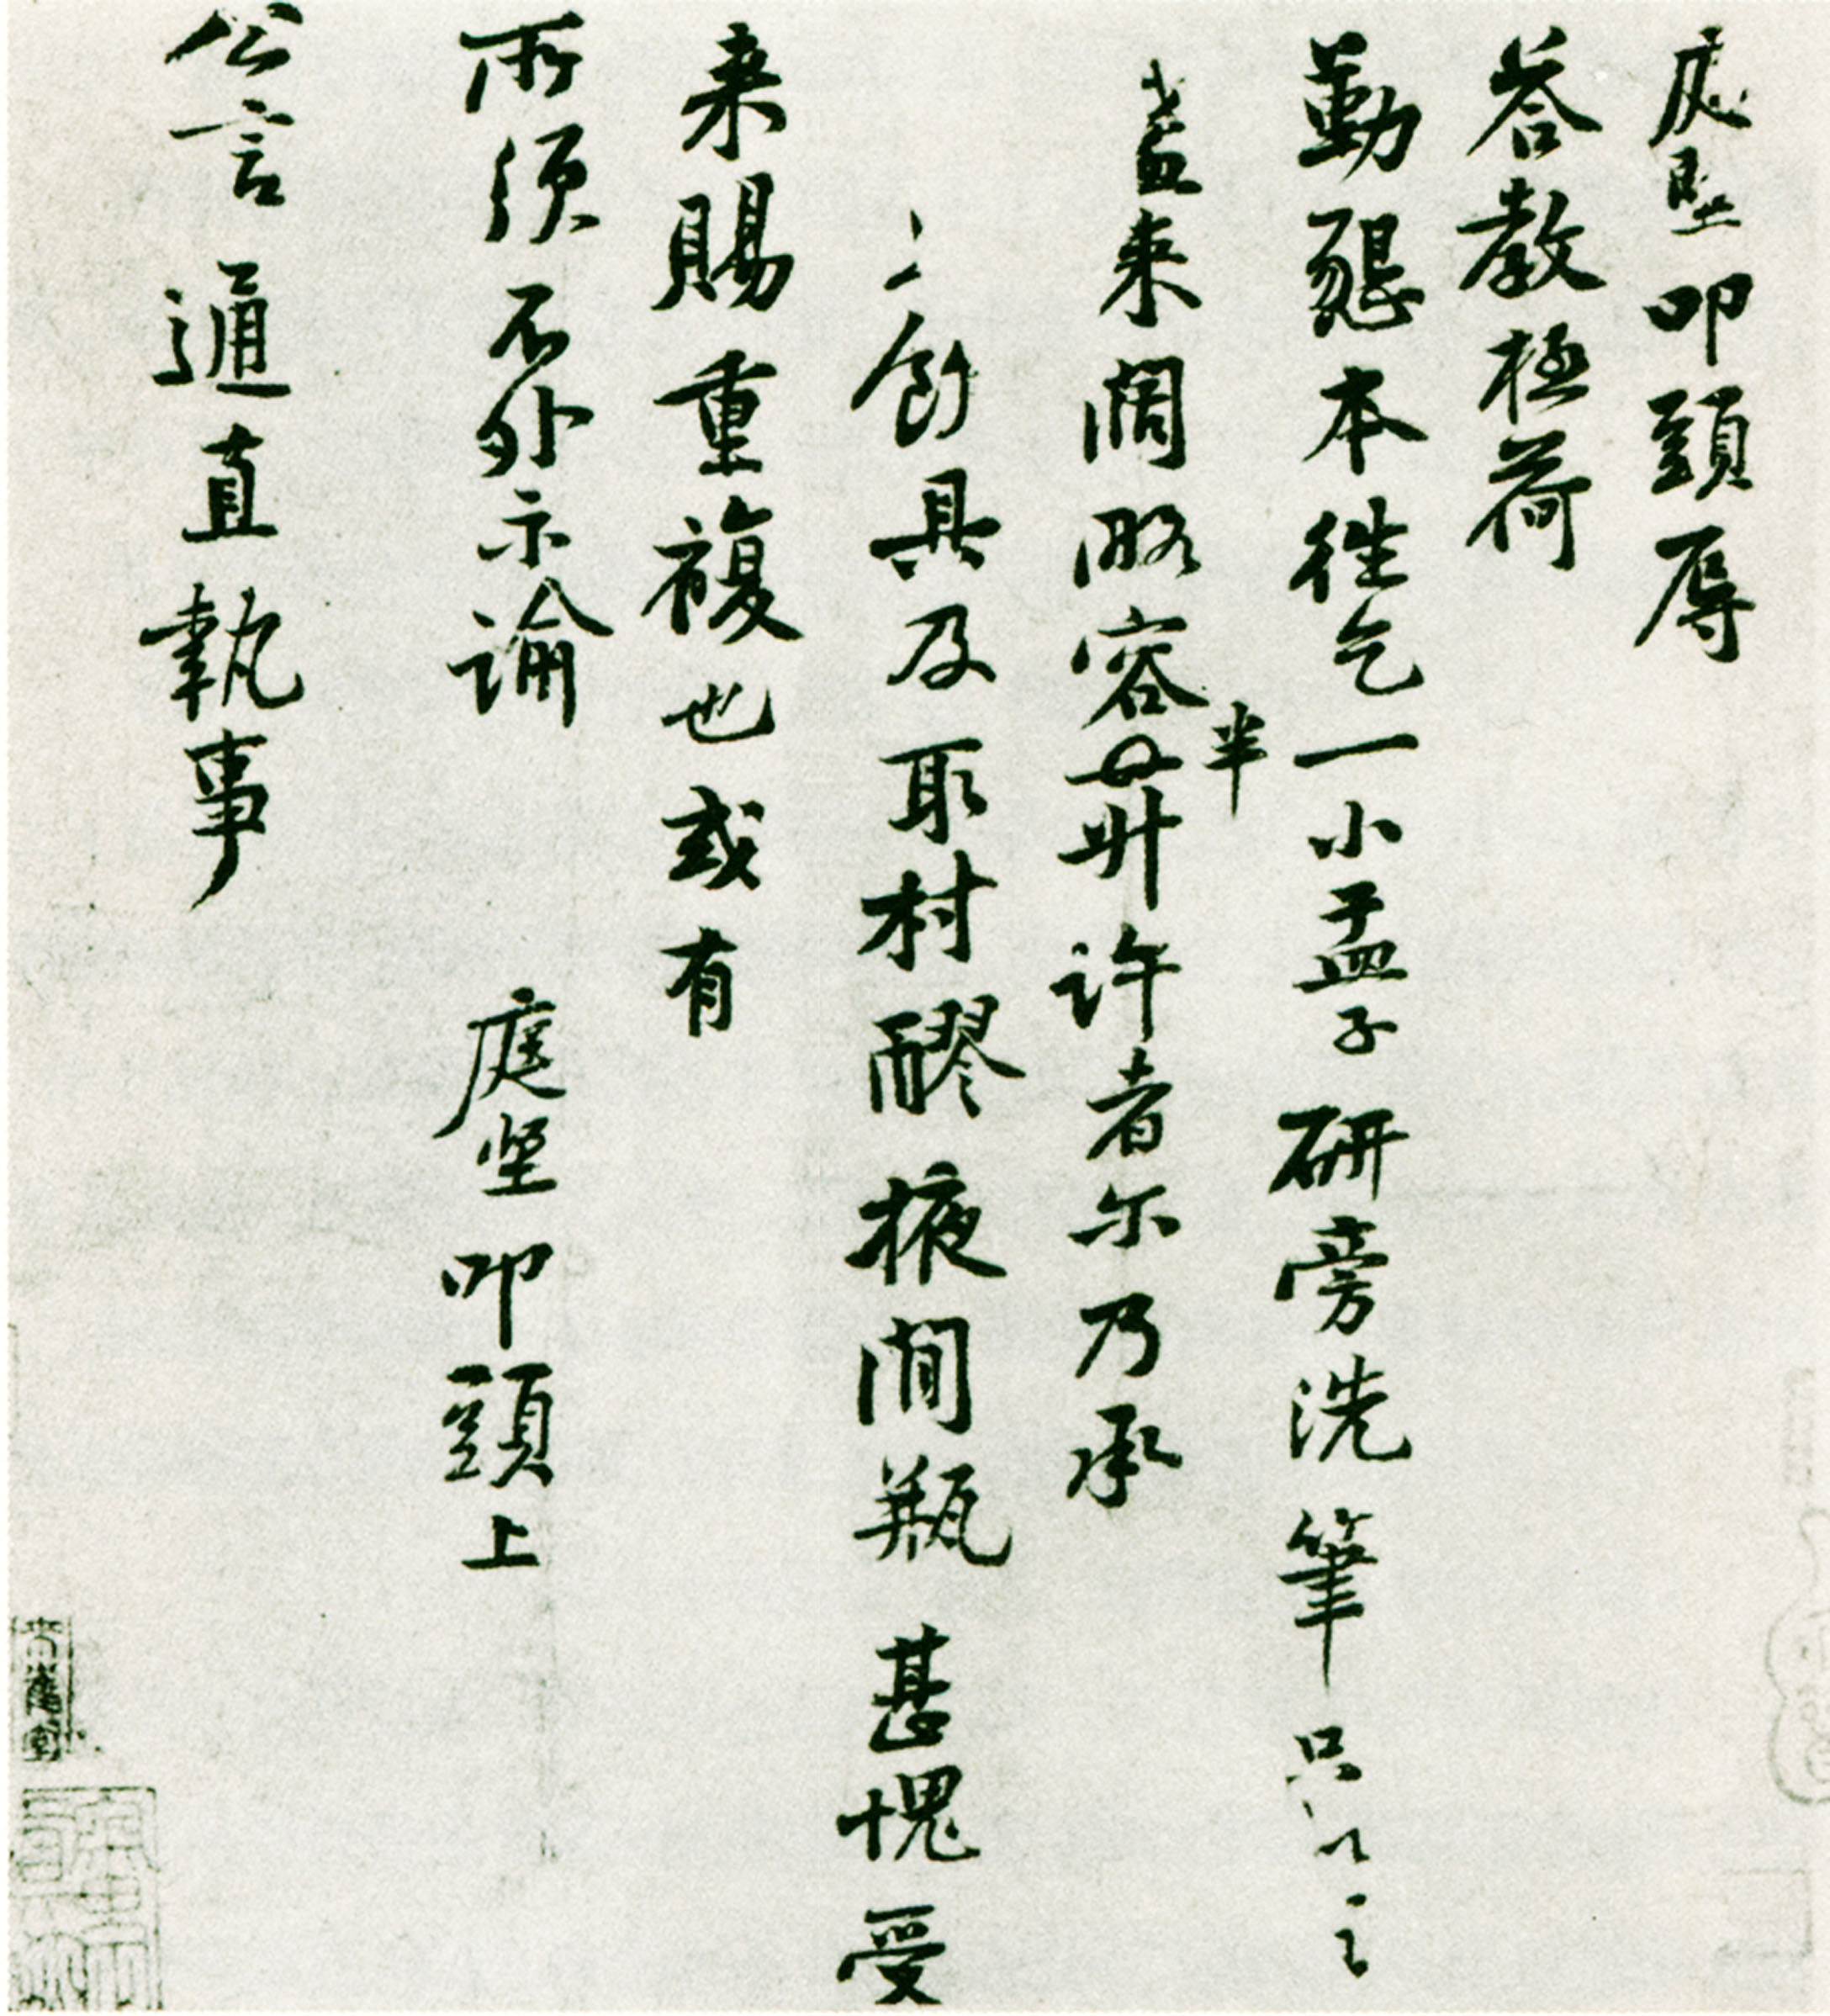 庭堅叩頭辱
荅教極荷
勤懇本往乞一小盂子研旁洗筆只以
盞来闊略容半升許者尔乃承
以飣具及取村醪掖間瓶甚愧受
来賜重複也或有
所須不外示諭 庭坚叩頭上
公言通直執事